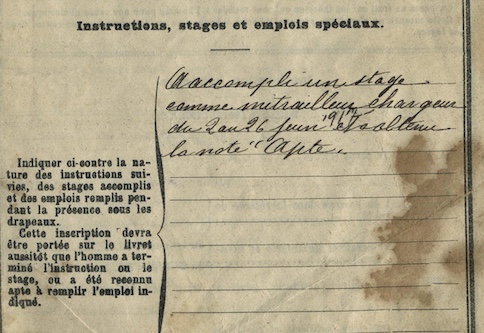 Instructions, stages et emplois spéciaux.
A accompli un stage
comme mitrailleur chargeur
du 2 au 26 et a obtenu
la note "Apte.
Indiquer ci-contre la na-
ture des instructions sui-
vies, des stages accomplis
et des emplois remplis pen-
dant la présence sous les
drapeaux.
Cette inscription devra
être portée sur le livret
aussitôt que l'homme a ter-
miné l'instruction ou le
stage, ou a été reconnu
apte à remplir l'emploi in-
diqué.